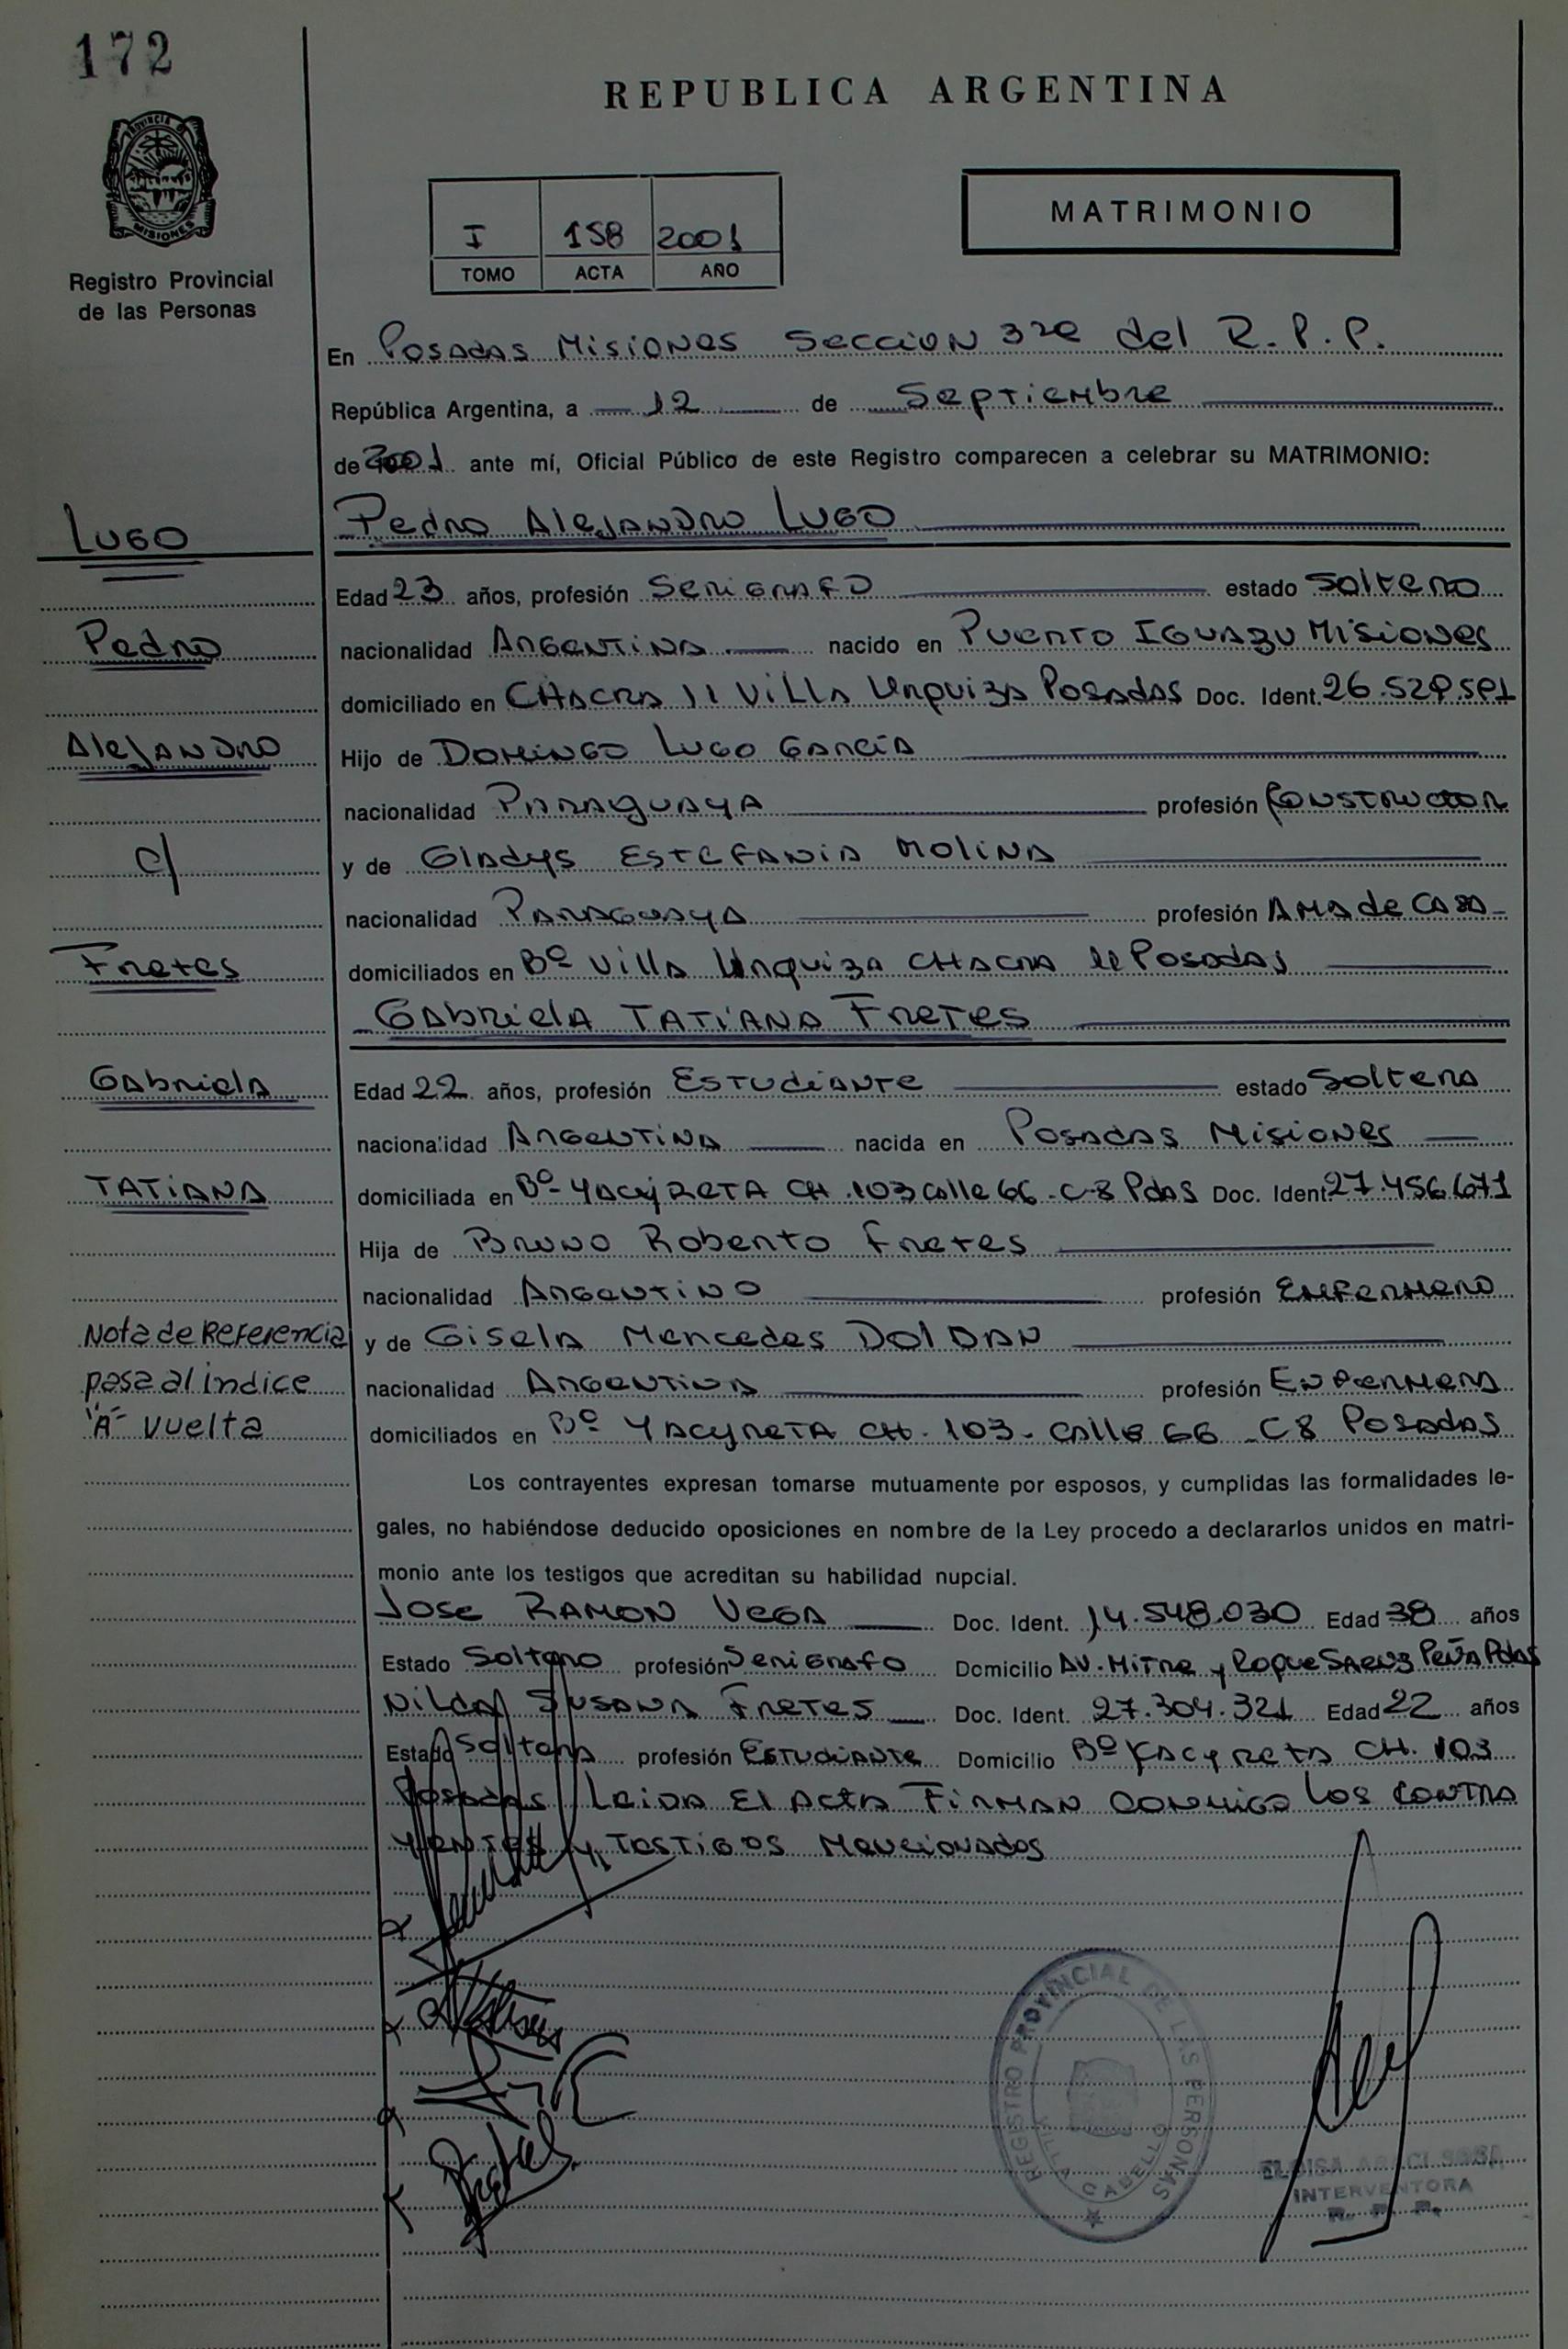 172
REPUBLICA ARGENTINA
MATRIMONIO
I 158 2001
TOMO ACTA AÑO
Registro Provincial
de las Personas
En Posadas Misiones Seccion 3ra del R.P.P.
República Argentina, a 12 de Septiembre
de 2001 ante mí, Oficial Público de este Registro comparecen a celebrar su MATRIMONIO:
LUGO
Pedro Alejandro LUGO
Edad 23 años, profesión Serigrafo estado Soltero
Pedro
nacionalidad Argentina nacido en Puerto Iguazu Misiones
domiciliado en CHACRA 11 Villa Urquiza Posadas Doc. Ident. 26.529.591
Alejandro
Hijo de Domingo Lugo García
nacionalidad Paraguaya profesión Constructor
c/
y de Gladys Estefania Molina
nacionalidad Paraguaya profesión Ama de Casa
Fretes
domiciliados en Bº Villa Urquiza CHACRA 11 Posadas
Gabriela Tatiana Fretes
Gabriela
Edad 22 años, profesión Estudiante estado Soltera
nacionalidad Argentina nacida en Posadas Misiones
Tatiana
domiciliada en Bº Yacyreta CH. 103 Calle 66 - C-8 Pdas Doc. Ident. 27.456.671
Hija de Bruno Roberto Fretes
nacionalidad Argentino profesión Enfermero
Nota de Referencia
pasa al índice
"A" vuelta
y de Gisela Mercedes Doldan
nacionalidad Argentina profesión Enfermera
domiciliados en Bº Yacyreta CH. 103 - Calle 66 - C8 Posadas
Los contrayentes expresan tomarse mutuamente por esposos, y cumplidas las formalidades le-
gales, no habiéndose deducido oposiciones en nombre de la Ley procedo a declararlos unidos en matri-
monio ante los testigos que acreditan su habilidad nupcial.
Jose Ramon Vega Doc. Ident. 14.548.030 Edad 38 años
Estado Soltero profesión Serigrafo Domicilio Av. Mitre y Roque Saenz Peña Pdas
Nilda Susana Fretes Doc. Ident. 27.304.321 Edad 22 años
Estado Soltera profesión Estudiante Domicilio Bº Yacyreta CH. 103
Posadas Leida El Acta Firman conmigo los contra
yentes y Testigos Mencionados
REGISTRO PROVINCIAL DE LAS PERSONAS
VILLA CABELLO
INTERVENTORA
R. P. P.